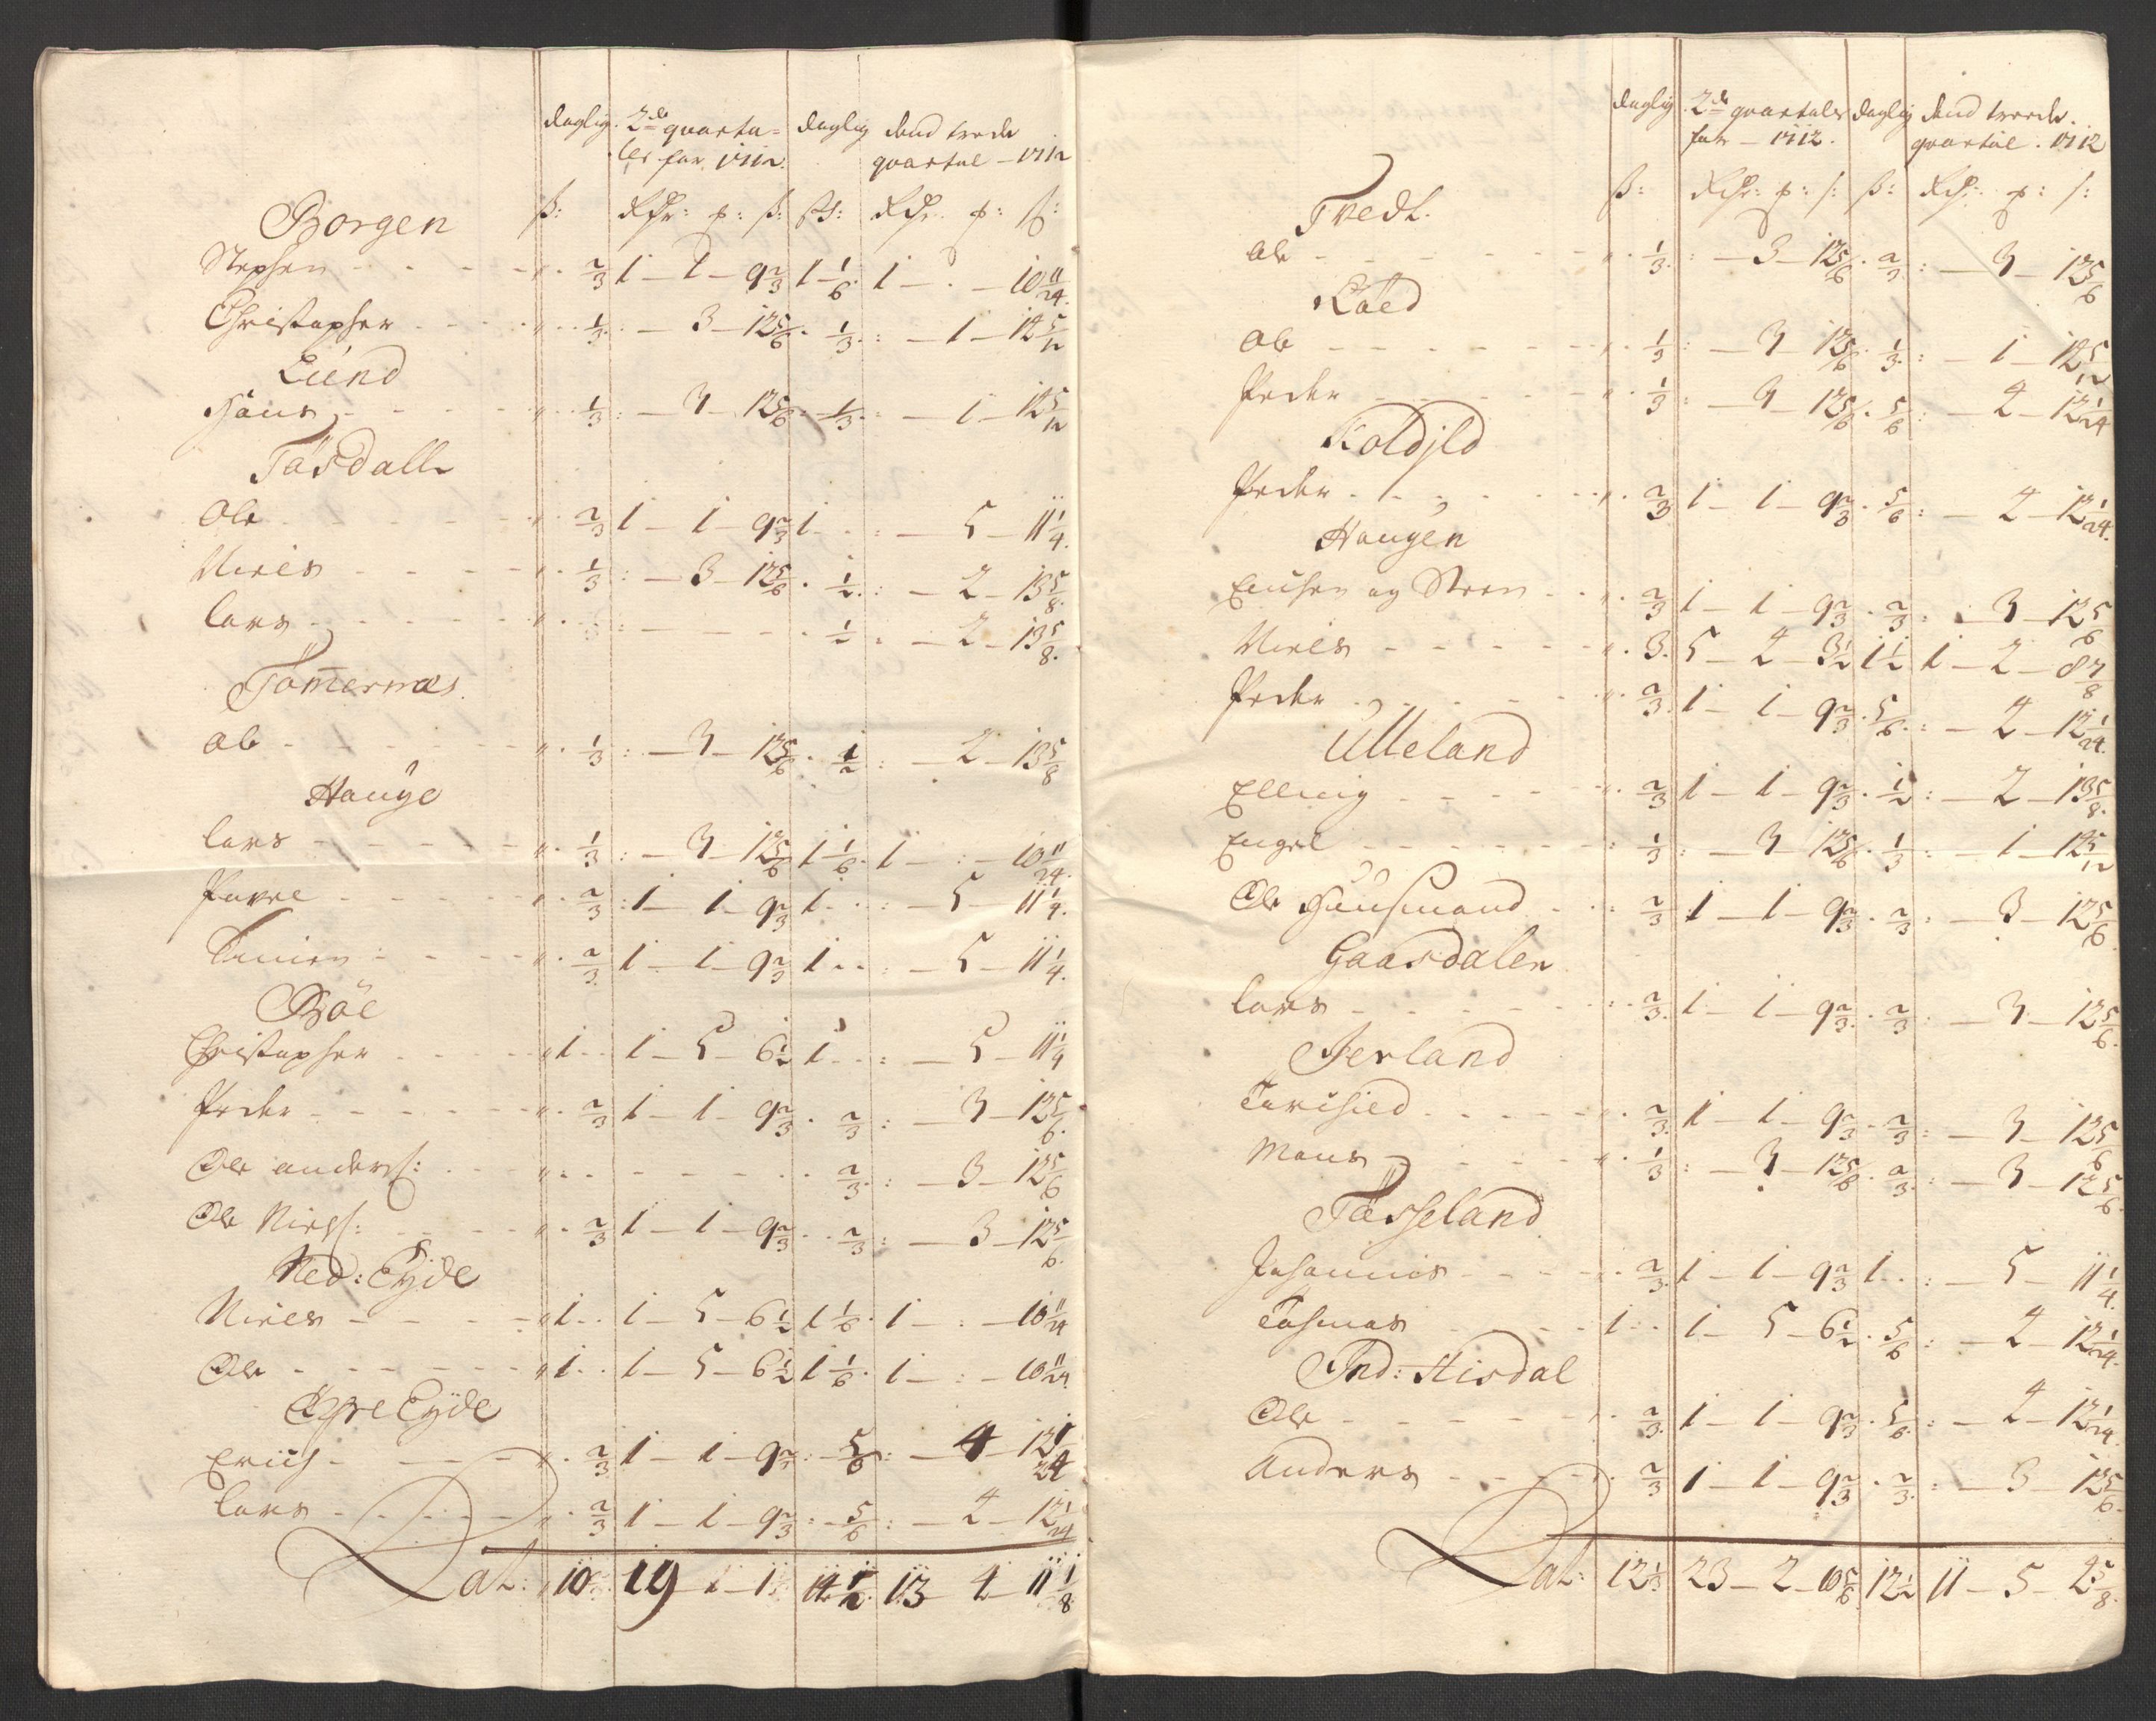 daglig. 2de quarta= daglig dend trede
ler for 1712. quartal – 1712
ß: Rdr: p: ß: ß: Rdr. p: ß:
Borgen
Stephen - - - - „ . 2/3 1 – 1 – 9 2/3 1 – 1/6 1 – . – 10 11/24.
Christopher - - - „ . 1/3. : – 3 – 12 5/6 . 1/3. : – 1 – 14 5/12
Lund
Hans - - - - „ . 1/3 : – 3 – 12 5/6 . 1/3. : – 1 – 14 5/12
Tösdall
Ole - - - - „ . 2/3 1 – 1 – 9 2/3 1 . . : – 5 – 11 1/4.
Niels - - - - „ . 1/3 : – 3 – 12 5/6 . 1/2. : – 2 – 13 5/8.
Lars - - - - : – - - . 1/2 : – 2 – 13 5/8.
Tömernæs.
Ole - - - - „ . 1/3 : – 3 – 12 5/6 . 1/2 : – 2 – 13 5/8
Hauge
Lars - - - - „ . 1/3 : – 3 – 12 5/6 1 1/6. 1 – : – 10 11/24.
Povel - - - - „ . 2/3 : 1 – 1 – 9 2/3 1 . . : – 5 – 11 1/4.
- - - - „ . 2/3. 1 – 1 – 9 2/3 1 . . : – 5 – 11 1/4.
Böe
Christopher - - - „ 1 . . 1 – 5 – 6 1/2 1 . . : – 5 – 11 1/4
Peder - - - - „ . 2/3 1 – 1 – 9 2/3 . 2/3 : – 3 – 12 5/6.
Ole anders: . - „ : . - - - - . . 2/3. : – 3 – 12 5/6
Ole Niels: - - „ . 2/3 1 – 1 – 9 2/3 . . 2/3 : – 3 – 12 5/6.
Ned: Eyde
Niels - - - - „ 1 . . 1 – 5 – 6 1/2 1 1/6. 1 – : – 10 11/24
Ole - - - - „ 1 . . 1 – 5 – 6 1/2 1 1/6. 1 – : – 10 11/24
Öfre Eyde
Erich - - - - „ . 2/3 1 – 1 – 9 2/3 : 5/6 : – 4 – 12 1/24
Lars - - - - „ . 2/3 1 – 1 – 9 2/3 : – 5/6 : – 4 – 12 1/24
Lat: 10 19 – 1 – 1 14 1/2 13 4 – 11 1/8
daglig 2de quartaler daglig dend trede.
for – 1712. quartal . 1712
ß: Rdr: p: ß: ß: Rdr. p: ß:
Tvedt.
Ole - - - - „ . 1/3. : – 3 – 12 5/6 . 2/3 : – 3 – 12 5/6
Röed
Ole - - - - „ . 1/3 : – 3 12 5/6 . 1/3. : – 1 – 14 5/12
Peder - - - - „ . 1/3 : – 3 12 5/6 . 5/6 : – 4 – 12 1/24
Koldjld
Peder - - - - „ . 2/3 1 – 1 – 9 2/3 . 5/6 : – 4 – 12 1/24.
Haugen
og Steen - - „ . 2/3 1 – 1 – 9 2/3 . 2/3 : – 3 – 12 5/6
Niels - - - - „ . 3. 5 – 4 – 3 1/2 1 1/2 1 – 2 – 8 7/8
Peder - - - - „ . 2/3. 1 – 1 – 9 2/3 . 5/6. : – 4 – 12 1/24.
Ulleland
Elling - - - - „ . 2/3 1 – 1 – 9 2/3 . 1/2 : – 2 – 13 5/8.
Engel - - - - : 1/3 : – 3 12 5/6 . 1/3 : – 1 – 14 5/12
Ole Huusmand - . : 2/3 1 – 1 – 9 2/3 . 2/3 : – 3 – 12 5/6
Gaasdalen
Lars - - - - : . 2/3. 1 – 1 – 9 2/3. . 2/3 : – 3 – 12 5/6.
Jerland
- - - - „ . 2/3. 1 – 1 – 9 2/3 . 2/3 : – 3 – 12 5/6
Mons - - - - „ . 1/3. : – 3 – 12 5/6 . 2/3. : – 3 – 12 5/6
Tösseland
Johannes - - - - . . 2/3. 1 – 1 – 9 2/3 1 . . : – 5 – 11 1/4.
- - - - 1 . . 1 – 5 – 6 1/2 . 5/6 : – 4 – 12 1/24.
Ind: Hisdal
Ole - - - - . 2/3. 1 – 1 – 9 2/3 . 5/6. : – 4 – 12 1/24.
Anders - - - - . 2/3 1 – 1 – 9 2/3 . 2/3. : – 3 – 12 5/6.
Lat: 12 1/3 23 – 2 – 10 5/6 12 1/2 11 – 5 – 4 5/8.